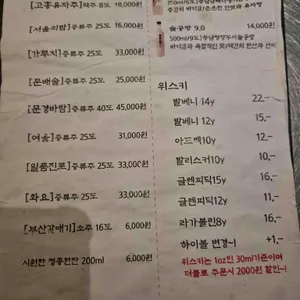 [고흥유자주]약주 8도 18,000원
[서울의밤]증류주 25도 16,000원
[가무치]증류주 25도 33,000원
[문배술]증류주 25도 30,000원
[문경바람]증류주 40도 45,000원
[여울]증류주 25도 31,000원
[일품진로]증류주 25도 33,000원
[화요]증류주 25도 33,000원
[부산갈매기]소주 16도 6,000원
시원한 청풍한잔 200ml 6,000원
술공방 9.0 14,000원
위스키
발베니 14y 22,-
발베니 12y 15,-
아드벡10y 12,-
탈리스커10y 10,-
글렌피딕15y 16,-
글렌피딕12y 11,-
라가불린8y 16,-
하이볼 변경~! +1,-
위스키는 1oz인 30ml기준이며
더블로 주문시 2000원 할인~!